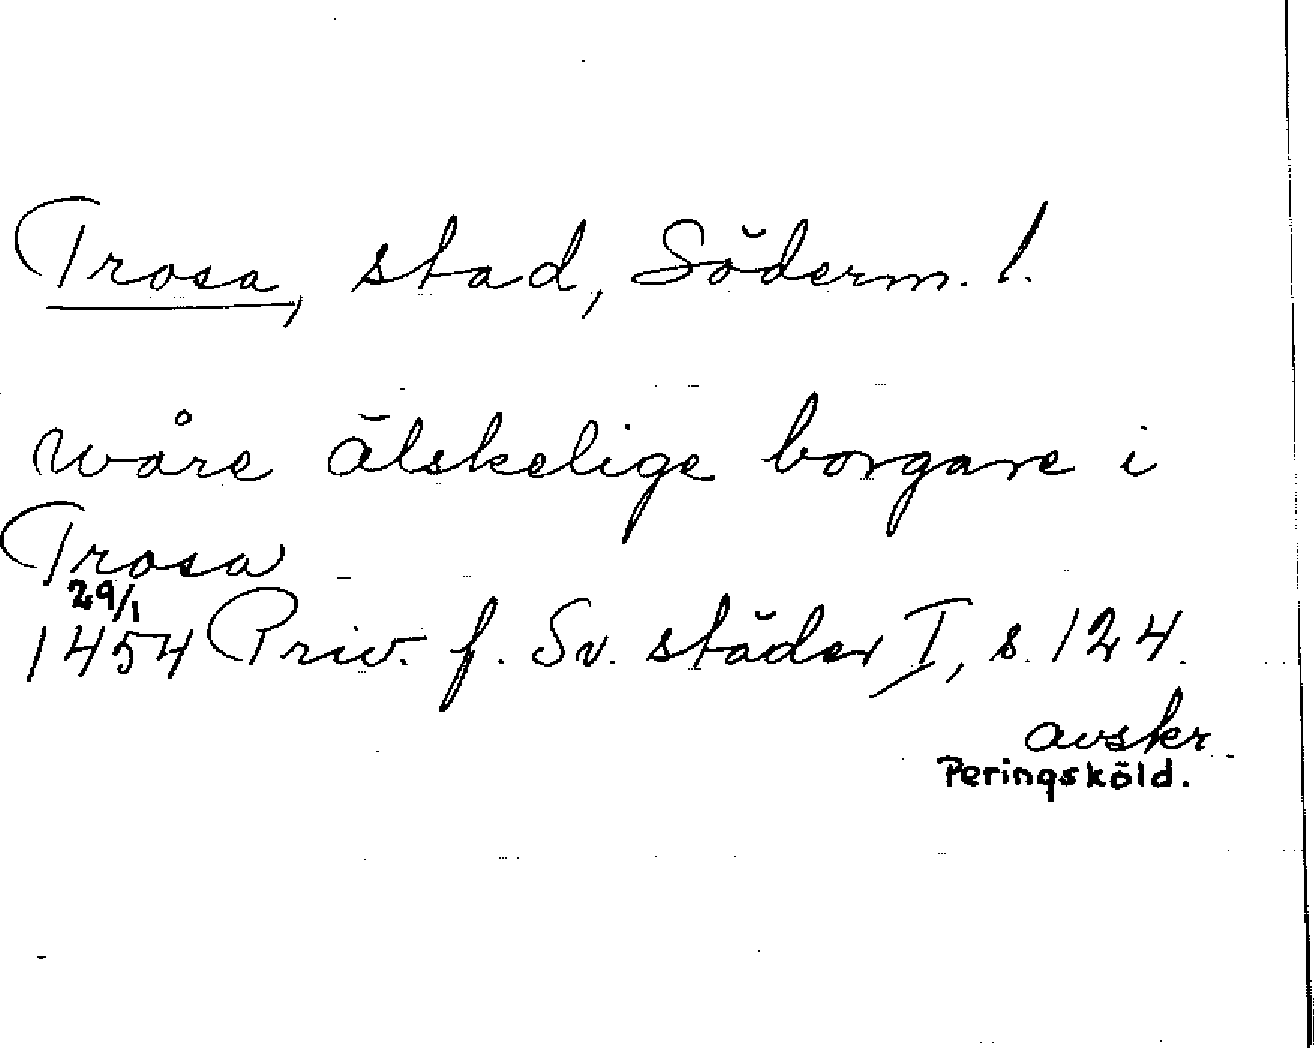 Trosa, stad, Söderm. l.
wåre älskelige borgare i
Trosa
29/1
1454 Priv. f. Sv. städer I, s. 124.
avskr.
Peringsköld.